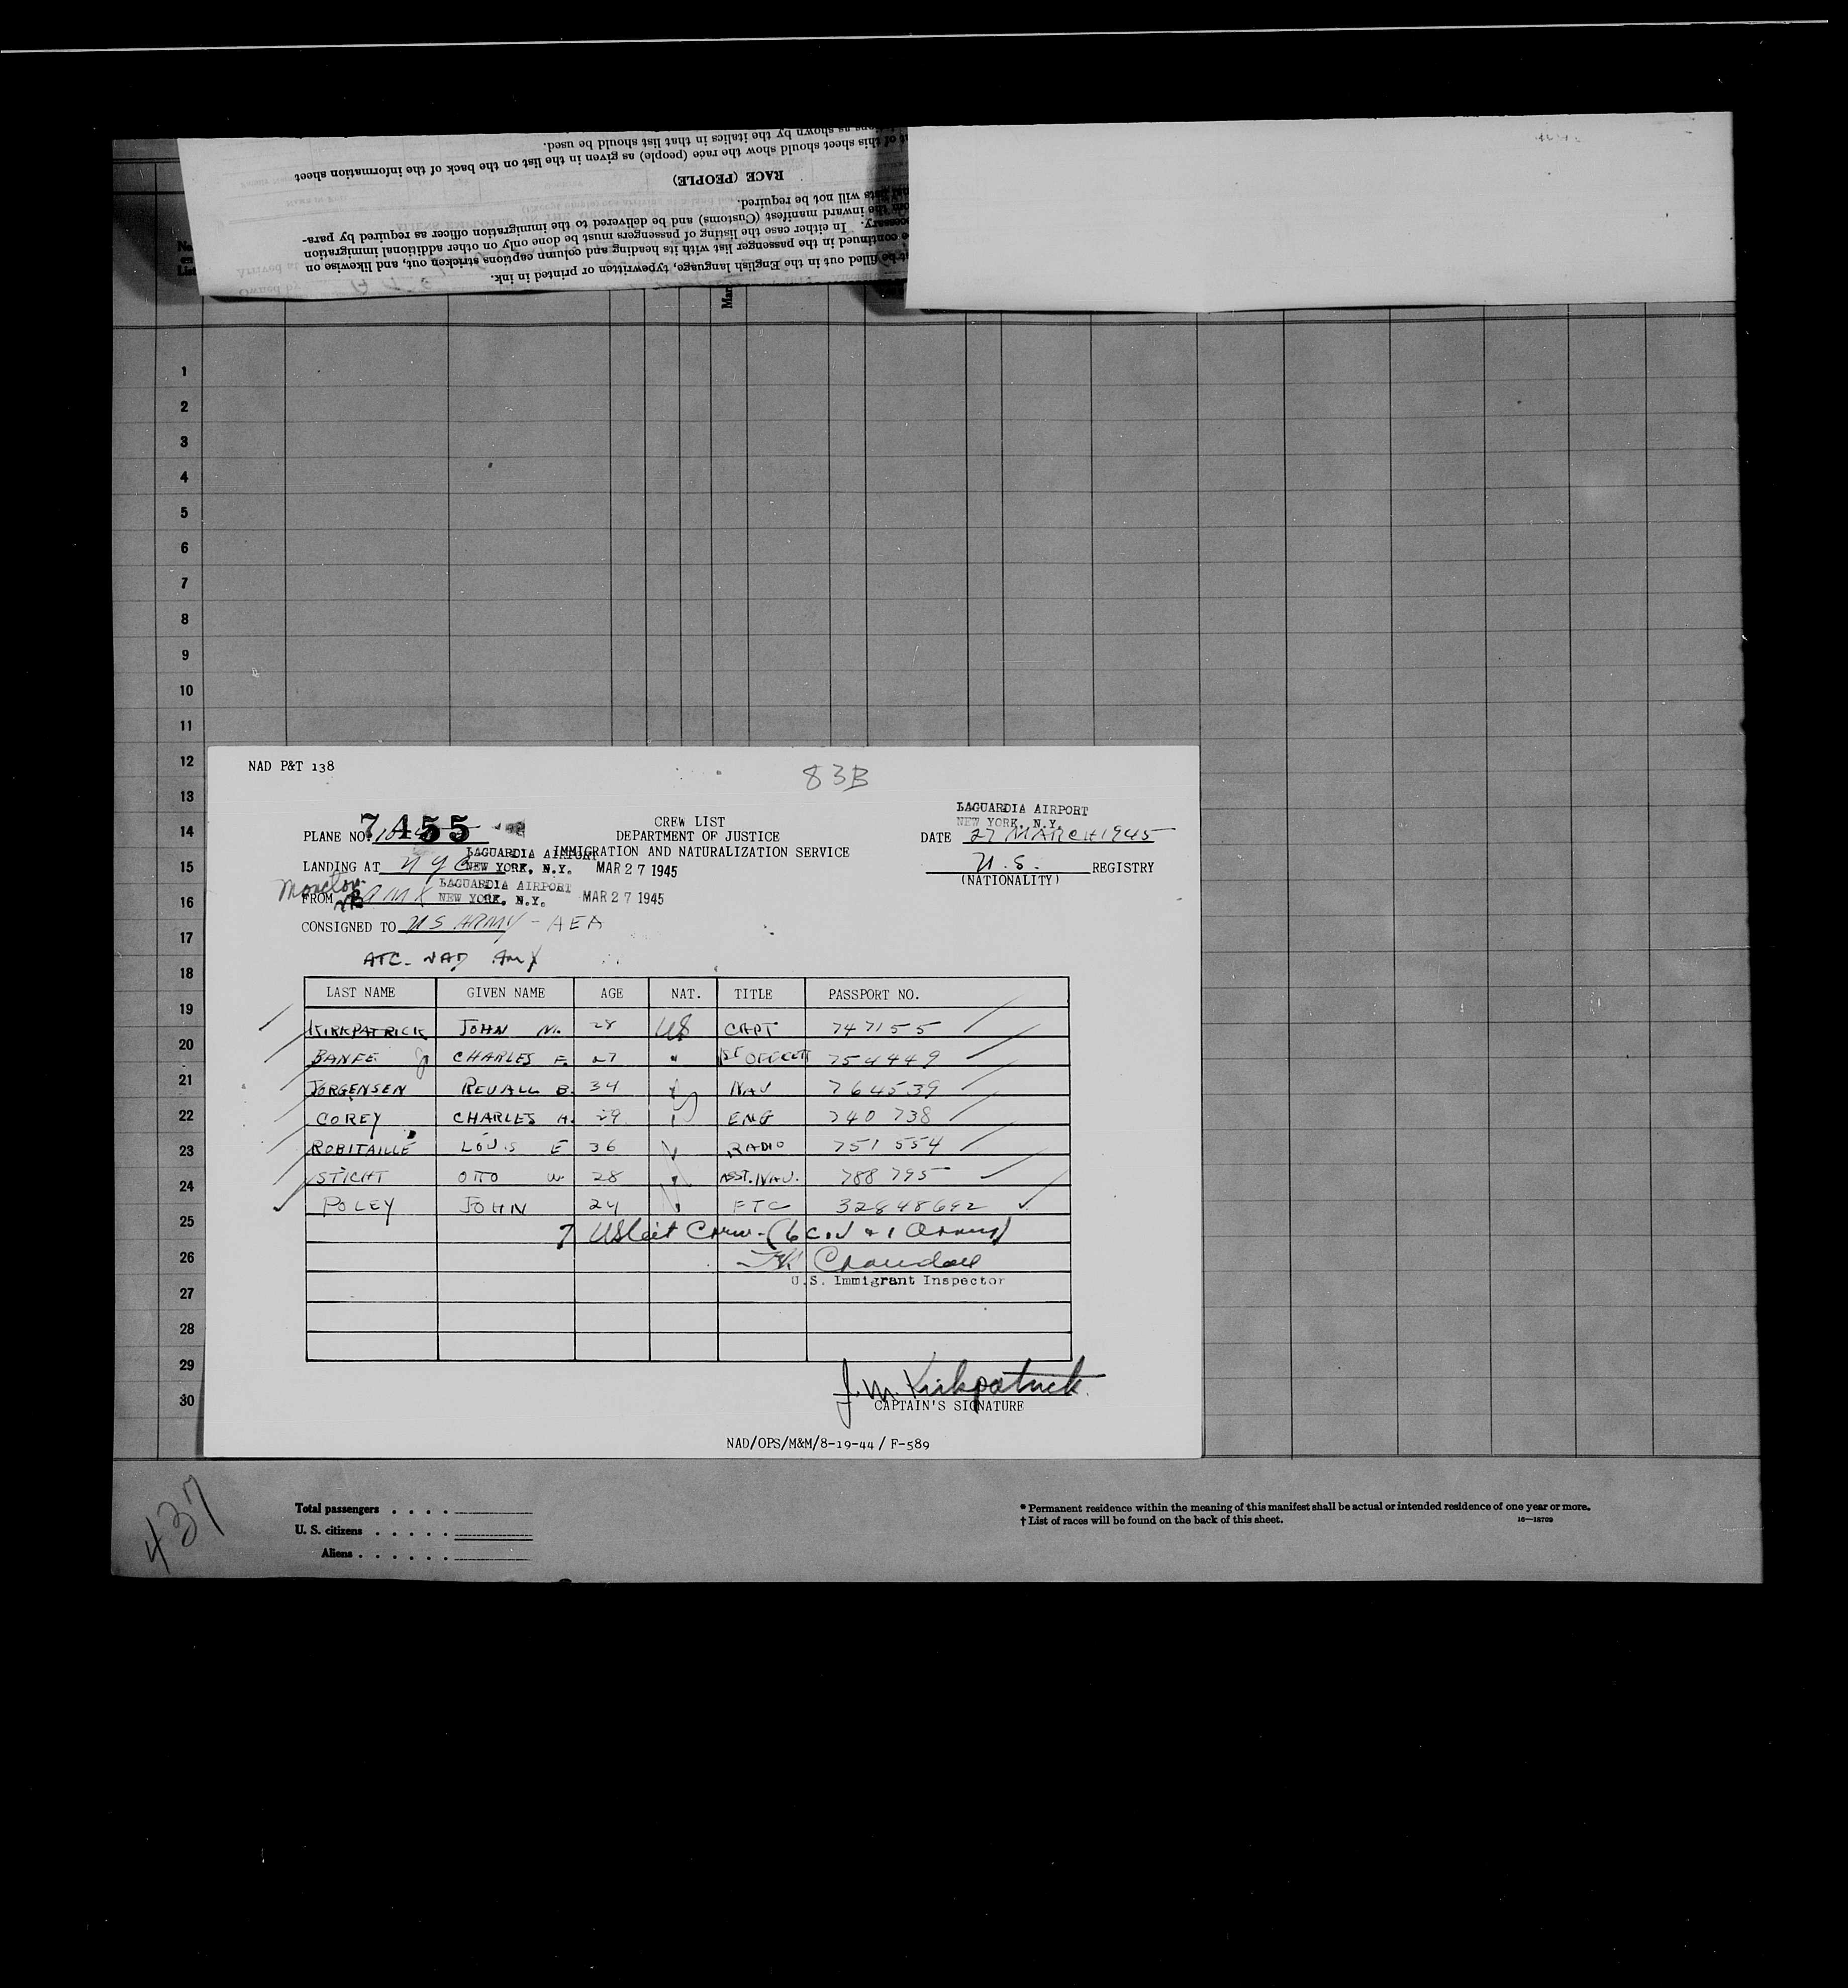 as shown by the italics in that list should be used.
of this sheet should show the race (people) as given in the list on the back of the information sheet
RACE (PEOPLE)
will not be required.
the inward manifest (Customs) and be delivered to the immigration officer as required by para-
In either case the listing of passengers must be done only on other additional immigration
continued in the passenger list with its heading and column captions stricken out, and likewise on
be filled out in the English language, typewritten or printed in ink.
1
2
3
4
5
6
7
8
9
10
11
12
13
14
15
16
17
18
19
20
21
22
23
24
25
26
27
28
29
30
NAD P&T 138
83B
LAGUARDIA AIRPORT
NEW YORK, N.Y.
PLANE NO. 7455
CREW LIST
DEPARTMENT OF JUSTICE
IMMIGRATION AND NATURALIZATION SERVICE
DATE 27 MARCH 1945
LANDING AT NYC LAGUARDIA AIRPORT NEW YORK, N.Y. MAR 27 1945
U.S. REGISTRY
(NATIONALITY)
FROM LAGUARDIA AIRPORT NEW YORK, N.Y. MAR 27 1945
CONSIGNED TO US ARMY - AEA
ATC - NAD
LAST NAME GIVEN NAME AGE NAT. TITLE PASSPORT NO.
KIRKPATRICK JOHN M. 28 US CAPT 747155
BANFE Jr CHARLES F. 27 " 1ST OFFICER 754449
JORGENSEN REVALL B. 34 " NAV 764539
COREY CHARLES H. 29 " ENG 740738
ROBITAILLE LOUIS E 36 " RADIO 751554
STICHT OTTO W. 28 " ASST. NAV. 788795
POLEY JOHN 24 " FTC 32848692
7 US Cit Crew - (6 Civ & 1 Army)
U.S. Immigrant Inspector
J. M. Kirkpatrick
CAPTAIN'S SIGNATURE
NAD/OPS/M&M/8-19-44/ F-589
437
Total passengers
U. S. citizens
Aliens
* Permanent residence within the meaning of this manifest shall be actual or intended residence of one year or more.
† List of races will be found on the back of this sheet.
16—18709